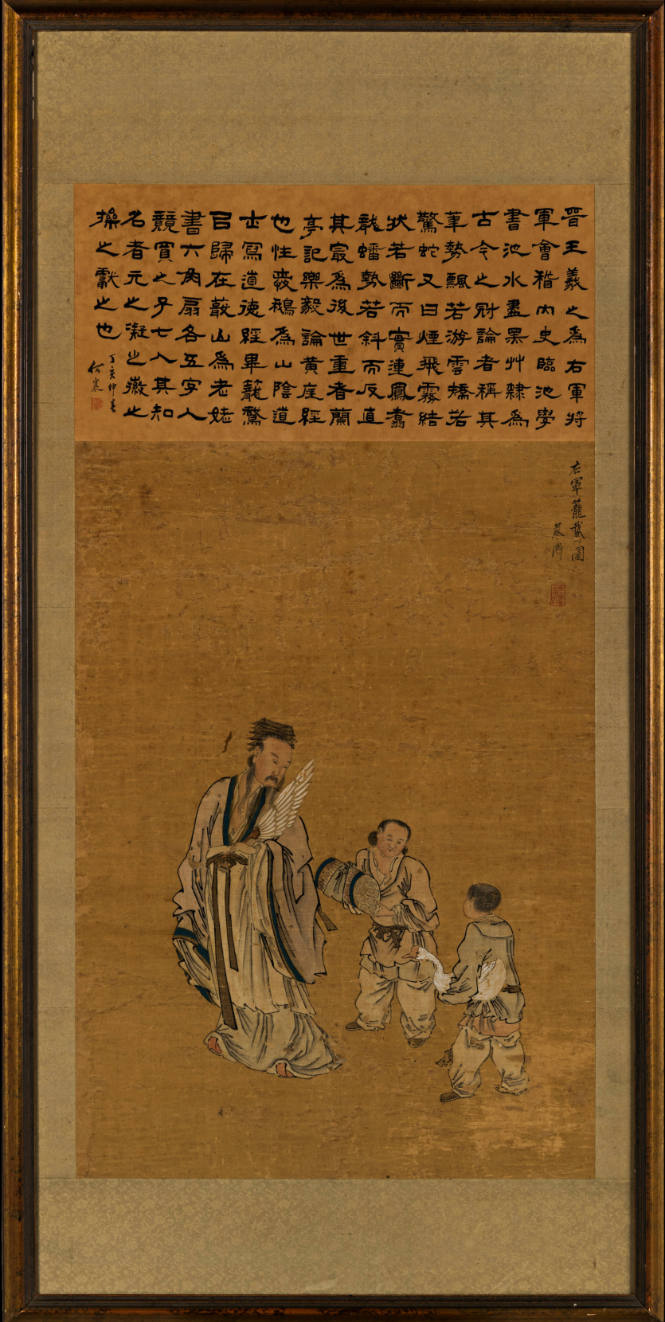 晉王羲之為右軍將
軍會稽內史臨池學
書池水盡黑艸隸為
古今之冠論者稱其
筆勢飄若游雲矯若
驚蛇又曰煙飛霧結
狀若斷而實連鳳翥
龍蟠勢若斜而反直
其最為後世重者蘭
亭記樂毅論黃庭經
也性愛鵝為山陰道
士寫道德經畢籠鵞
㠯歸在蕺山為老姥
書六角扇各五字人
競買之子七人其知
名者元之凝之徽之
操之獻之也
丁亥仲春
右軍籠鵞圖